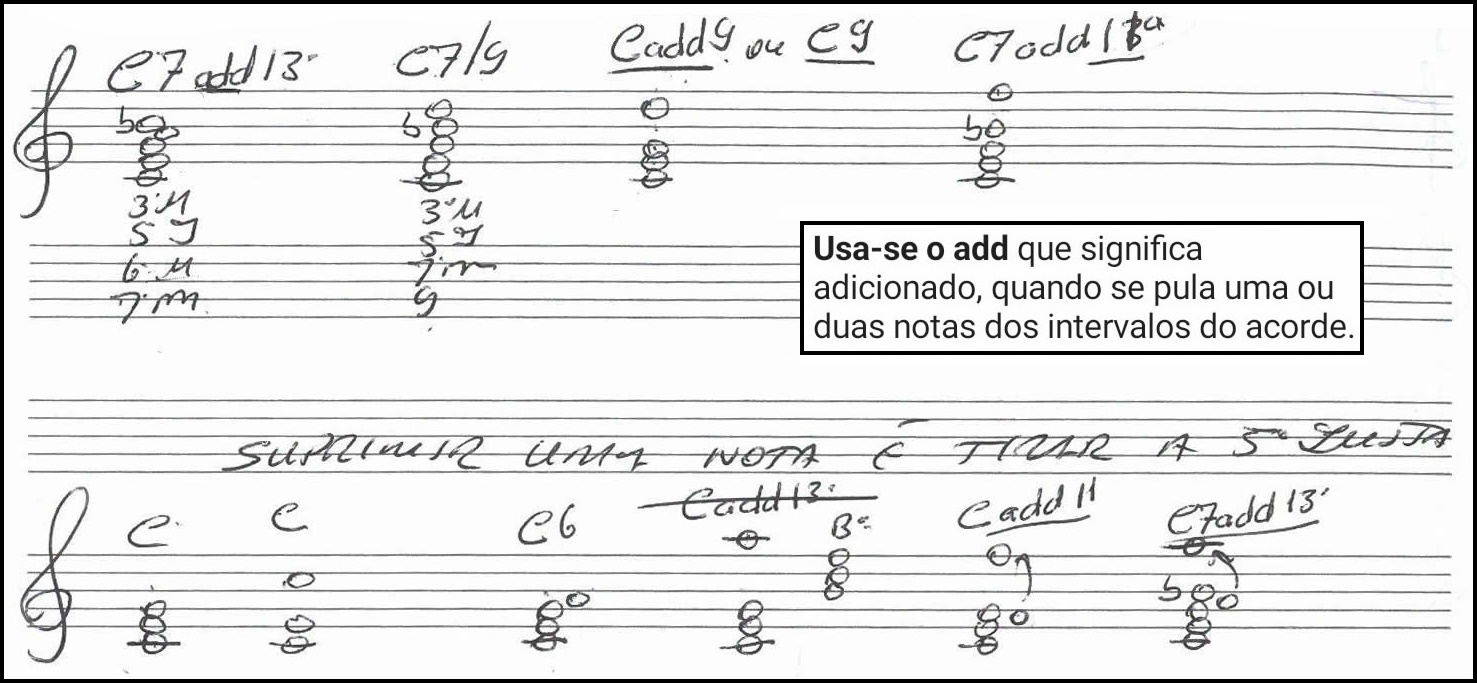 C7 add 13ª C7/9 Cadd9 ou C9 C7add11ª
3ª M 3ª M
5 J 5 J
6 M 7 m
7 m 9
Usa-se o add que significa
adicionado, quando se pula uma ou
duas notas dos intervalos do acorde.
SUPRIMIR UMA NOTA É TIRAR A 5ª JUSTA
C C C6 Cadd13ª Bº Cadd11 C7add13ª